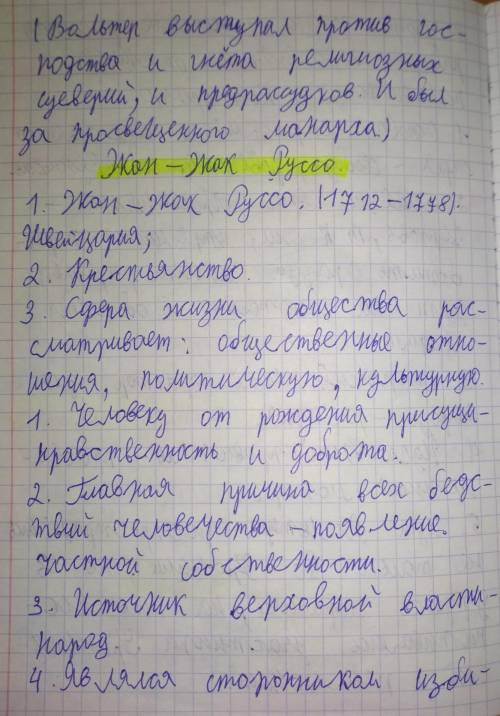 (Вольтер выступал против гос-
подства и гнёта религиозных
суеверий, и предрассудков. И был
за просвещенного монарха)
Жан – Жак Руссо.
1. Жан – Жак Руссо. (1712 – 1778).
Швейцария;
2. Крестьянство.
3. Сфера жизни общества рас-
сматривает: общественные отно-
шения, политическую, культурную.
1. Человеку от рождения присущи-
нравственность и доброта.
2. Главная причина всех бедс-
твий человечества – появление
частной собственности.
3. Источник верховной власти-
народ.
4. Являлся сторонником изби-